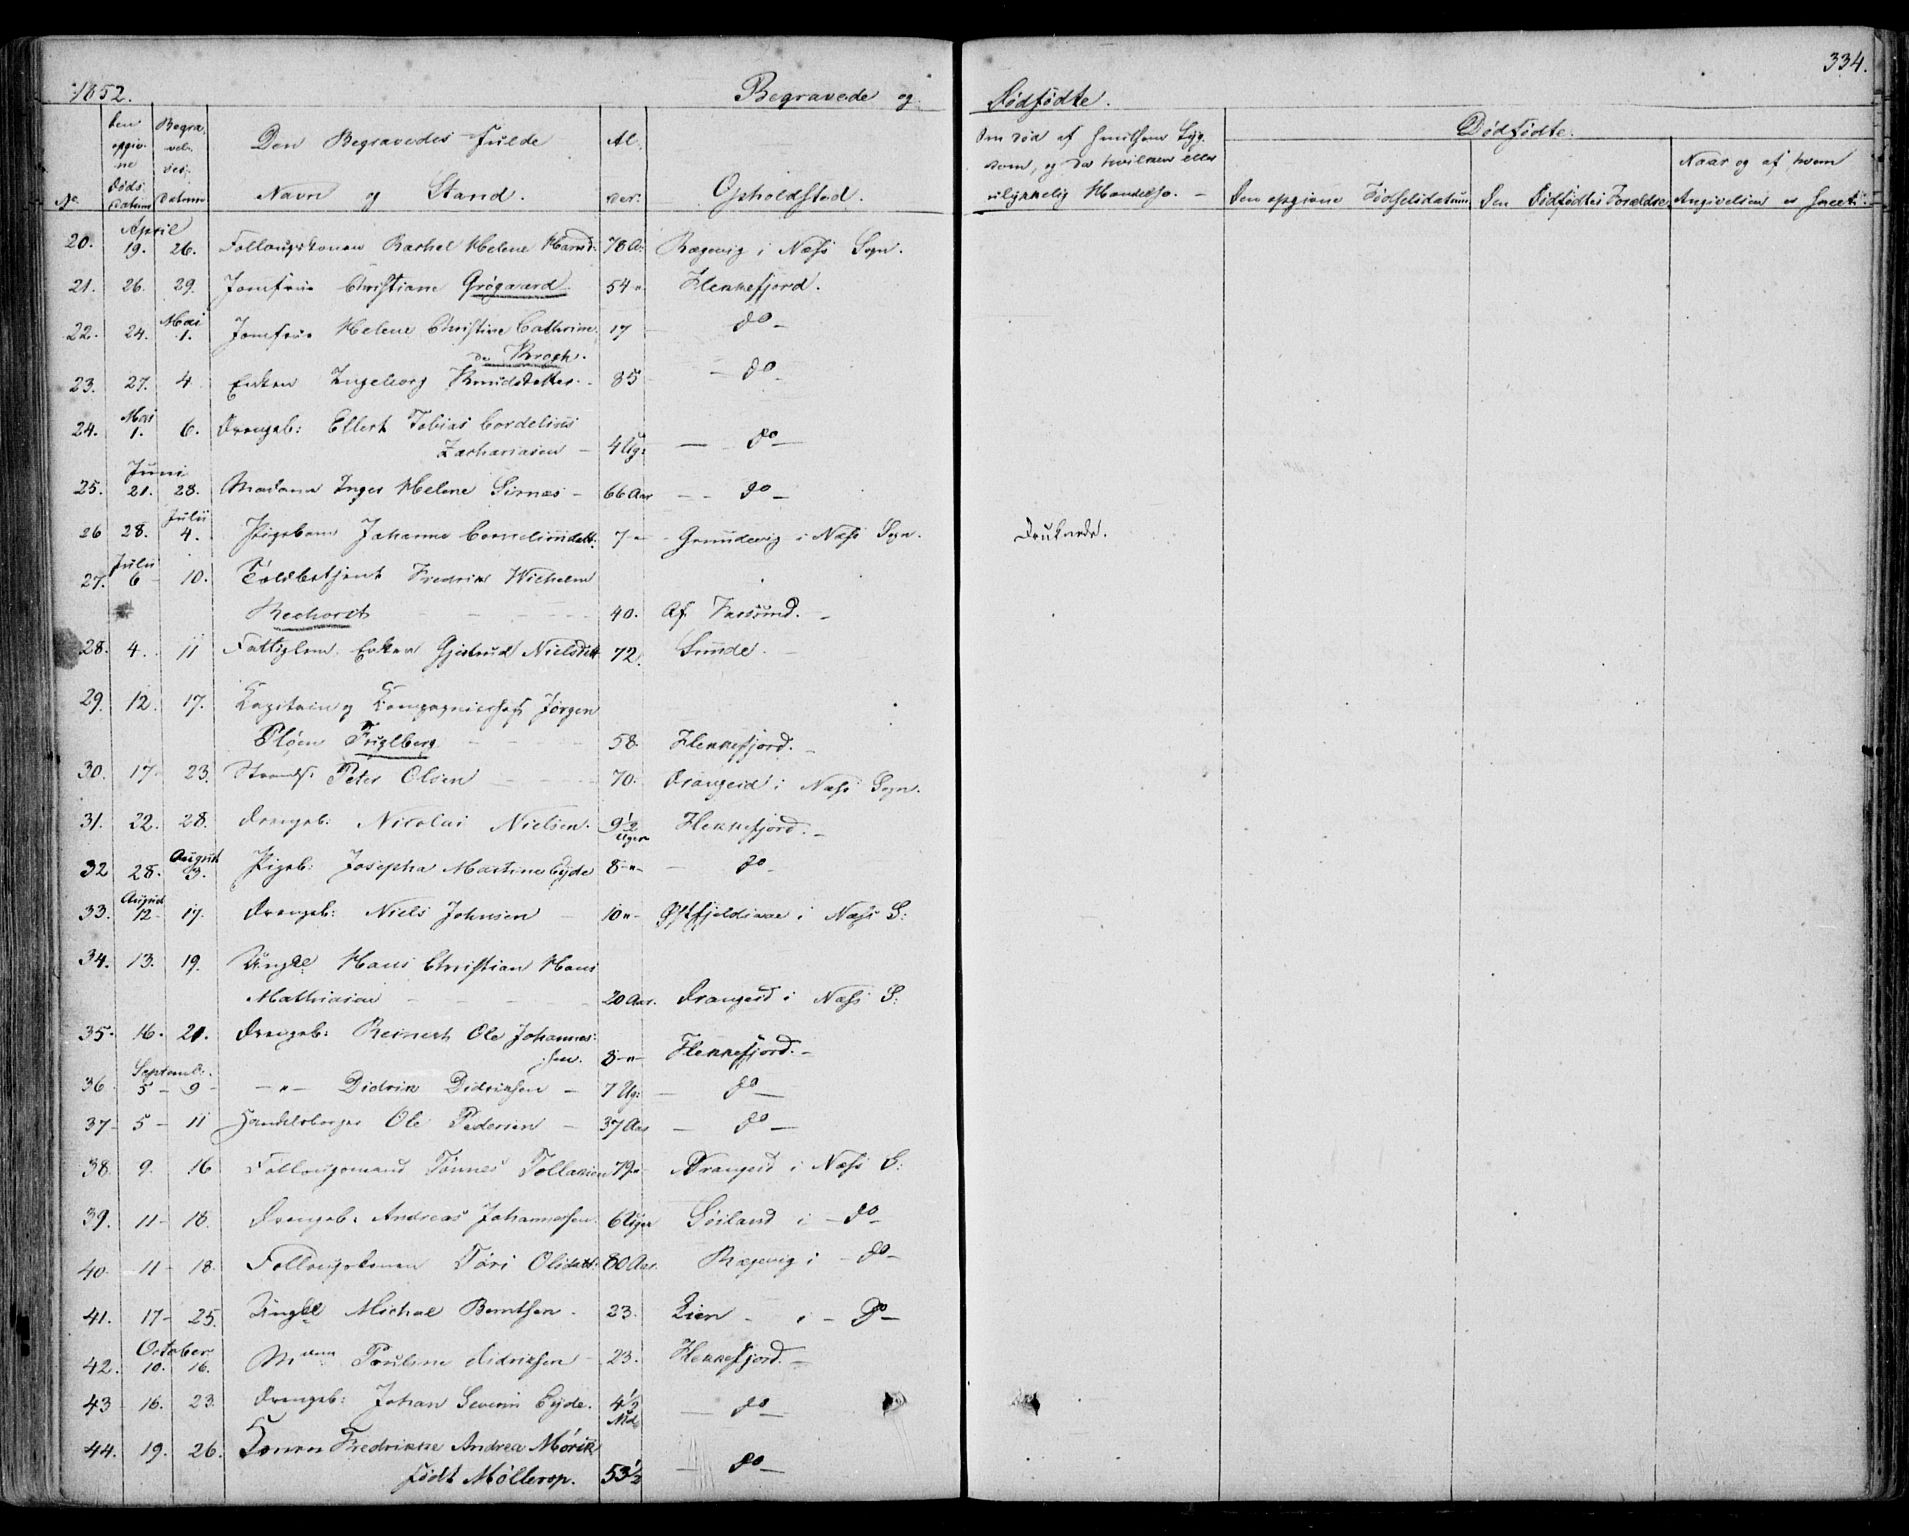 1852.
Begravede og
Dødfødte.
334.
No.
Den opgivne Døds datum
Begravelses datum
Den Begravedes fulde
Navn og Stand.
Alder.
Opholdsted.
Om død af smitsom Syg
dom, og da hvilken eller
ulykkelig Hændelse.
Dødfødte.
Den opgivne Fødselsdatum
Den Dødfødtes Forældre
Naar og af hvem
Angivelsen er skeet
April
20. 19. 26. Follougskonen Rachel Helene Hansd: 78 A: Rægevig i Næss Sogn.
21. 26. 29. Jomfrue Christiane Grøgaard 54 " Flekkefjord.
Mai
22. 24. 1. Jomfrue Helene Christine Cathrine 17 do
de Krogh.
23. 27. 4. Enken Ingeborg Knudsdatter. 85 do
Mai
24. 1. 6. Drengeb: Ellert Tobias Cordelius
Zachariasen 4 Ug: do
Juni
25. 21. 28. Madame Inger Helene Sirnæs 66 Aar do
Julii
26 28. 4. Pigebarn Johanne Corneliusdatt: 7 " Grundevig i Næss Sogn. Druknede.
Julii
27. 6 10. Toldbetjent Fredrik Wilhelm
Rechorst 40. Af Farsund.
28. 4. 11 Fattiglem Enken Gjertrud Nielsdtt 72. Sunde.
29. 12. 17. Kapitain og Kompagniechef Jørgen
Pløen Fuglberg 58. Flekkefjord.
30. 17. 23. Strands: Peter Olsen 70. Drangeid i Næss Sogn.
31. 22. 28. Drengeb: Nicolai Nielsen. 9 1/2 Uger Flekkefjord.
August
32 28. 3. Pigeb: Josepha Martine Eyde 8 " do
August
33. 12 17. Drengeb: Niels Johnsen 10 " i Næss S:
34. 13. 19. Ungkl Hans Christian Hans
Mathiasen 20 Aar. Drangeid i Næss S:
35. 16. 21. Drengeb: Reinert Ole Johannes
sen. 8 " Flekkefjord.
Septemb:
36 5 9 " Didrik Didriksen 7 Ug: do
37 5 11 Handelsborger Ole Pedersen 37 Aar do
38. 9. 16 Follougsmand Tønnes Tollacsen 79 " Drangeid i Næss S:
39. 11 18. Drengeb: Andreas Johannessen. 6 Uger i do
40. 11 18. Follougskonen Tøri Olsdatt: 80 Aar. Rægevig i do
41. 17 25. Ungkl Michal Berntsen. 23. Lien i do
October
42. 10. 16. Mdm Pauline Didriksen 23. Flekkefjord.
43 16. 23. Drengeb: Johan Severin Eyde. 4 1/2 Md: do
44. 19. 26. Konen Fredrikke Andrea Mörik
født Møllerop. 53 1/2 do